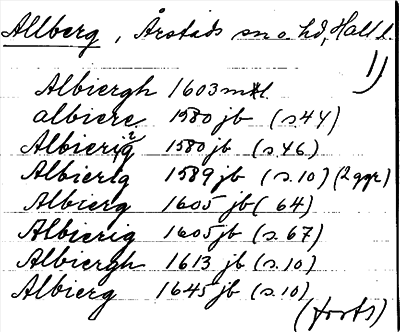 Allberg, Årstads sn o. hd, Hall l.
1)
Albiergh 1603 mtl.
albiere 1580 jb (s.44)
Albierig 1580 jb (s.46)
Albierig 1589 jb (s.10) (2 ggr)
Albierg 1605 jb (64)
Albierig 1605 jb (s.67)
Albiergh 1613 jb (s.10)
Albierg 1645 jb (s.10)
(forts)